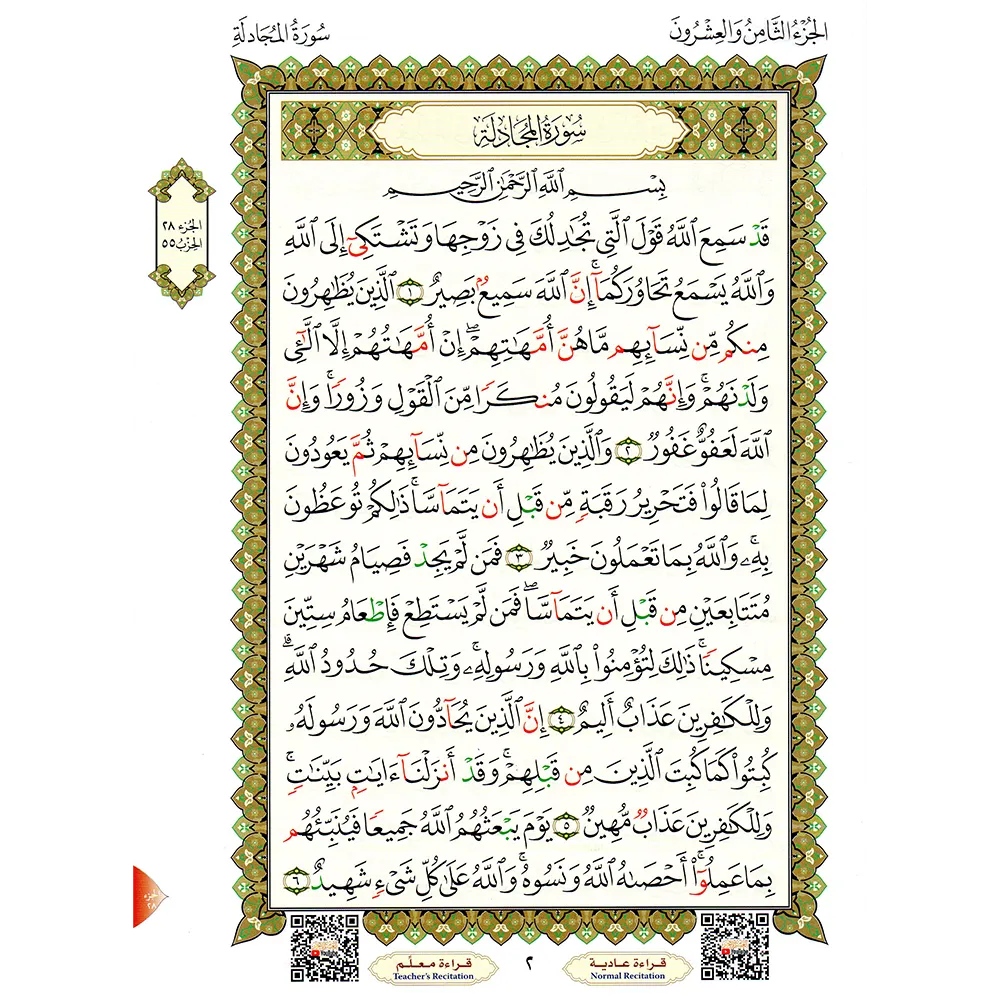 الجُزْءُ الثَّامِنُ وَالْعِشْرُونَ
سُورَةُ المُجَادلَةِ
سُورَةُ المُجَادلَةِ
بِسْمِ ٱللَّهِ ٱلرَّحْمَٰنِ ٱلرَّحِيمِ
قَدْ سَمِعَ ٱللَّهُ قَوْلَ ٱلَّتِي تُجَٰدِلُكَ فِي زَوْجِهَا وَتَشْتَكِيٓ إِلَى ٱللَّهِ
وَٱللَّهُ يَسْمَعُ تَحَاوُرَكُمَآۚ إِنَّ ٱللَّهَ سَمِيعُۢ بَصِيرٌ ١ ٱلَّذِينَ يُظَٰهِرُونَ
مِنكُم مِّن نِّسَآئِهِم مَّا هُنَّ أُمَّهَٰتِهِمْۖ إِنْ أُمَّهَٰتُهُمْ إِلَّا ٱلَّٰٓـِٔي
وَلَدْنَهُمْۚ وَإِنَّهُمْ لَيَقُولُونَ مُنكَرًا مِّنَ ٱلْقَوْلِ وَزُورًاۚ وَإِنَّ
ٱللَّهَ لَعَفُوٌّ غَفُورٌ ٢ وَٱلَّذِينَ يُظَٰهِرُونَ مِن نِّسَآئِهِمْ ثُمَّ يَعُودُونَ
لِمَا قَالُوا۟ فَتَحْرِيرُ رَقَبَةٍ مِّن قَبْلِ أَن يَتَمَآسَّاۚ ذَٰلِكُمْ تُوعَظُونَ
بِهِۦۚ وَٱللَّهُ بِمَا تَعْمَلُونَ خَبِيرٌ ٣ فَمَن لَّمْ يَجِدْ فَصِيَامُ شَهْرَيْنِ
مُتَتَابِعَيْنِ مِن قَبْلِ أَن يَتَمَآسَّاۖ فَمَن لَّمْ يَسْتَطِعْ فَإِطْعَامُ سِتِّينَ
مِسْكِينًاۚ ذَٰلِكَ لِتُؤْمِنُوا۟ بِٱللَّهِ وَرَسُولِهِۦۚ وَتِلْكَ حُدُودُ ٱللَّهِۗ
وَلِلْكَٰفِرِينَ عَذَابٌ أَلِيمٌ ٤ إِنَّ ٱلَّذِينَ يُحَآدُّونَ ٱللَّهَ وَرَسُولَهُۥ
كُبِتُوا۟ كَمَا كُبِتَ ٱلَّذِينَ مِن قَبْلِهِمْۚ وَقَدْ أَنزَلْنَآ ءَايَٰتٍۭ بَيِّنَٰتٍۚ
وَلِلْكَٰفِرِينَ عَذَابٌ مُّهِينٌ ٥ يَوْمَ يَبْعَثُهُمُ ٱللَّهُ جَمِيعًا فَيُنَبِّئُهُم
بِمَا عَمِلُوٓا۟ۚ أَحْصَىٰهُ ٱللَّهُ وَنَسُوهُۚ وَٱللَّهُ عَلَىٰ كُلِّ شَيْءٍ شَهِيدٌ ٦
الجُزء ٢٨
الحِزْبُ ٥٥
قراءة عادية
Normal Recitation
٢
قراءة معلّم
Teacher's Recitation